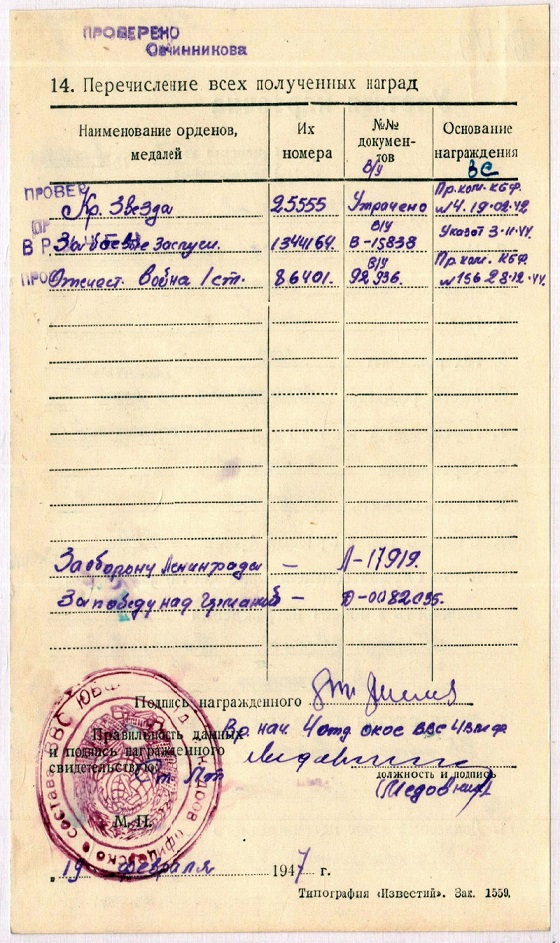 ПРОВЕРЕНО
Овчинникова
14. Перечисление всех полученных наград
Наименование орденов, медалей
Их номера
№№ докумен-тов
в/у
Основание награждения
ВС
ПРОВЕР
Кр. Звезда 25555 Утрачено Пр. ком. КБФ. №4. 19.02.42
в/у
За боевые заслуги. 1344164. В-15838 Указ от 3.11.44.
в/у
Отечест. война 1 ст. 86401. 92936. Пр. ком. КБФ. №156 28.12.44.
За оборону Ленинграда – Л-17919.
За победу над Германией –
Подпись награжденного
Правильность данных
и подпись награжденного
свидетельствую:
Вр. нач. 4 отд. ОКОС ВВС
должность и подпись
(Медовник)
М.П.
„19 февраля 1947 г.
Типография «Известий». Зак. 1559.